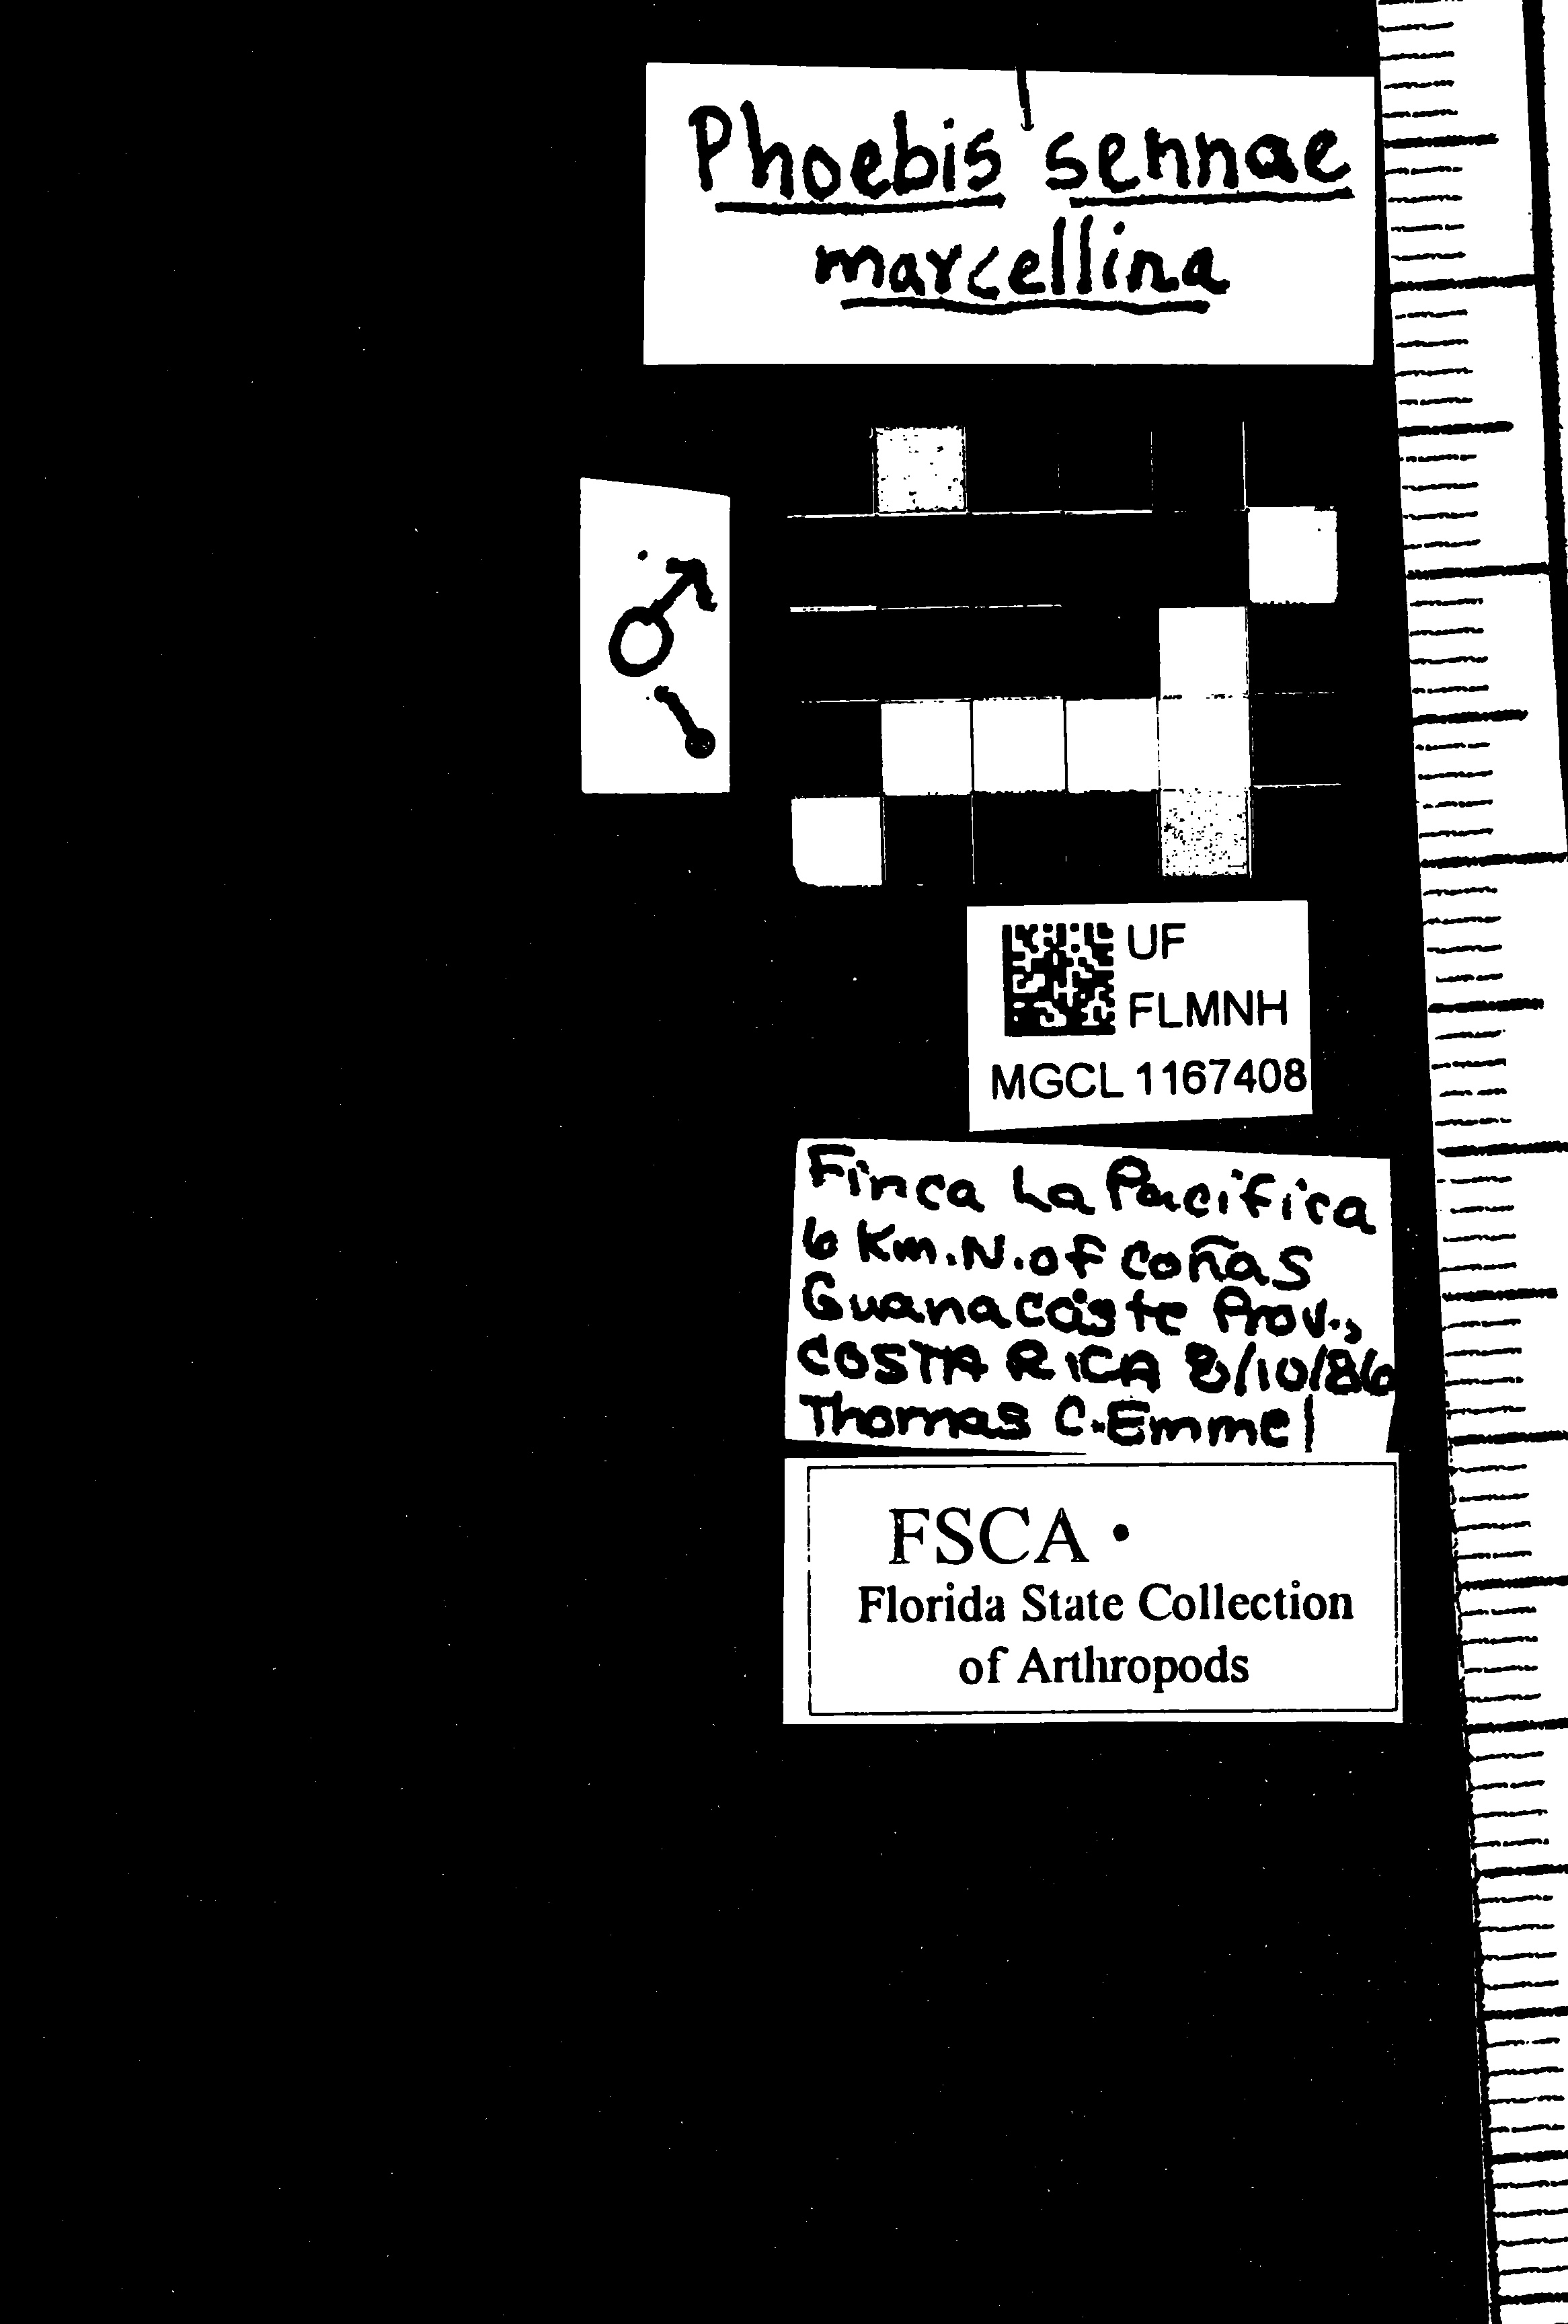 Phoebis sennae
marcellina
♂
UF
FLMNH
MGCL 1167408
Finca La Pacifica
6 Km.N.of Coñas
Guanacaste Prov.,
COSTA RICA 8/10/86
Thomas C.Emmel
FSCA •
Florida State Collection
of Arthropods